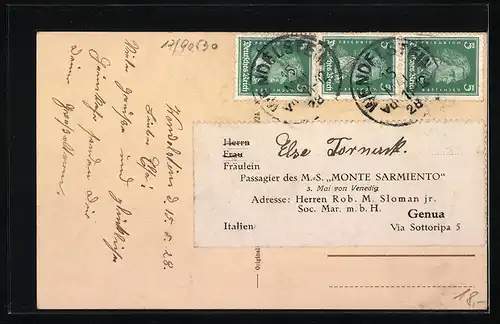 17/90530
Wendelstein d. 15.5.28.
Liebe Else!
Viele Grüße und glückliche
Heimkehr senden Dir
Deine Großeltern.
5
5
5
Deutsches Reich
Deutsches Reich
Deutsches Reich
WENDELSTEIN
Herrn
Frau
Fräulein
Else Tornack.
Passagier des M.-S. „MONTE SARMIENTO"
3. Mai von Venedig
Adresse: Herren Rob. M. Sloman jr.
Soc. Mar. m. b. H.
Genua
Italien
Via Sottoripa 5
Original
18,-